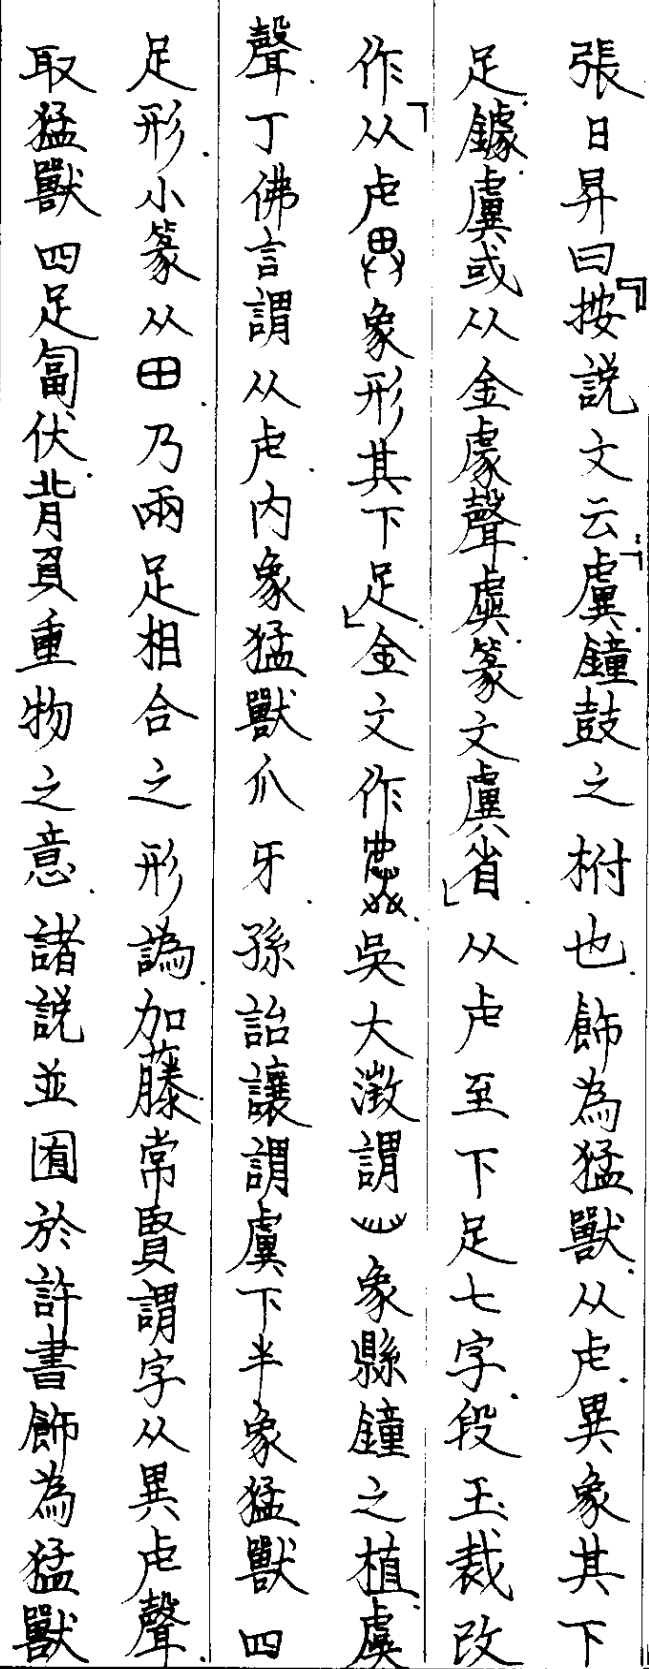 張日昇曰按説文云虡鐘鼓之柎也飾為猛獸从虍異象其下
足鐻虡或从金豦聲虞篆文虡省从虍至下足七字段玉裁改
作从虍象形其下足金文作吳大澂謂象縣鐘之植虞
聲丁佛言謂从虍内象猛獸爪牙孫詒讓謂虡下半象猛獸四
足形小篆从田乃兩足相合之形譌加藤常賢謂字从異虍聲
取猛獸四足匐伏背負重物之意諸説並囿於許書飾為猛獸